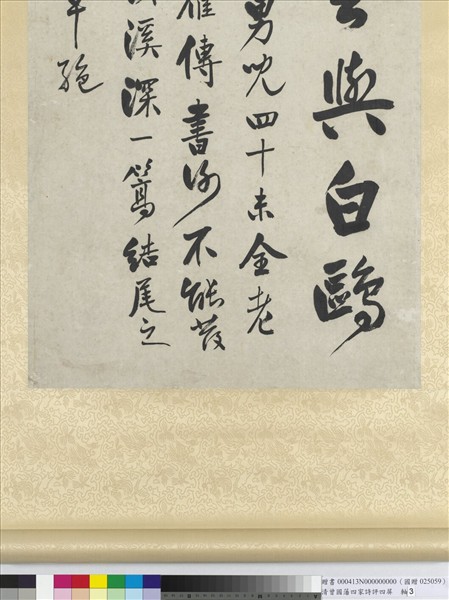 與白鷗
男兒四十未全老
雁傳書謝不能發
溪深一篙結尾之
絕
贈書 000413N000000000（國贈 025059）
清曾國藩四家詩評四屏 軸 3